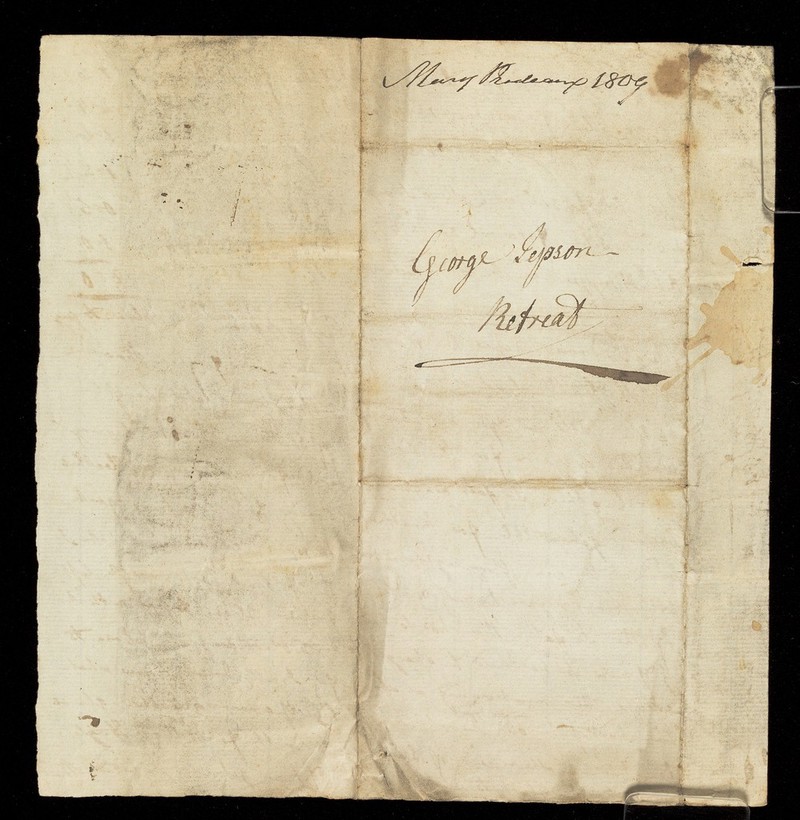 Mary Prideaux 1809
George Jepson
Retreat